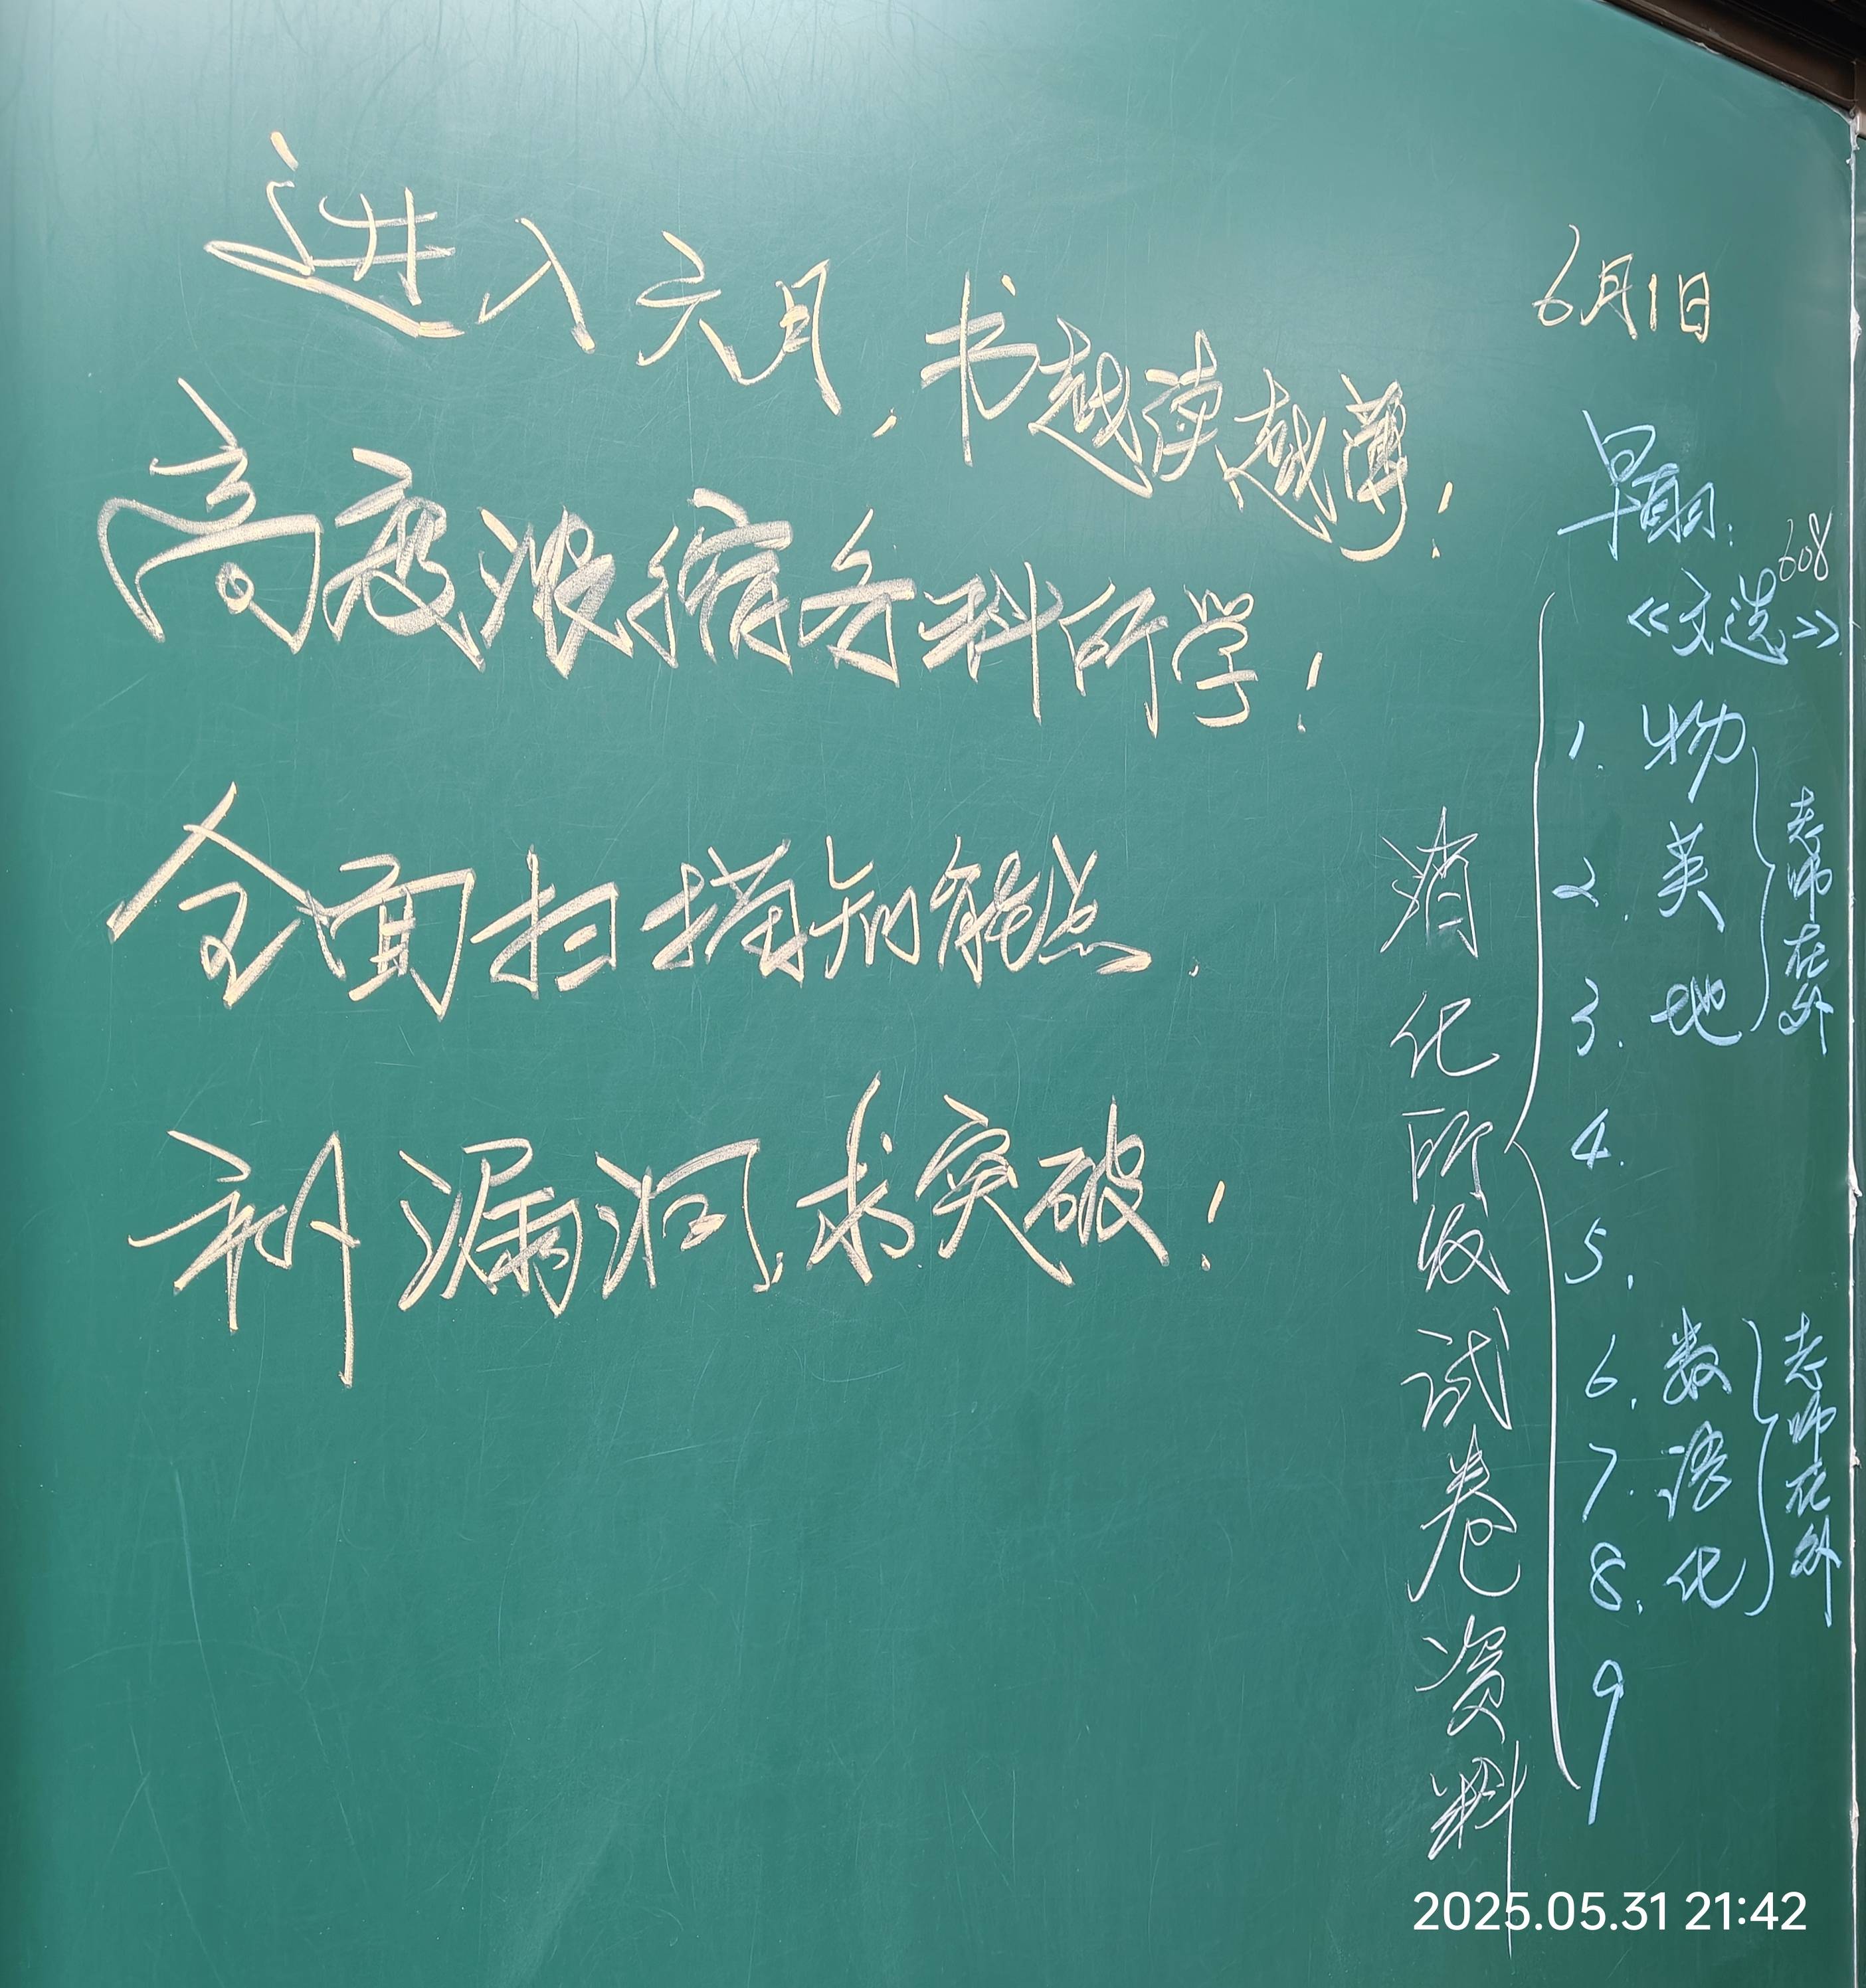 进入六月，书越读越薄！
高度浓缩各科所学！
全面扫描知能点．
补漏洞，求突破！
6月1日
早自习：
608
《文选》
1. 物
2. 英
3. 地
老师在外
4.
5.
6. 数
7. 语
8. 化
老师在外
9
消化所收试卷资料
2025.05.31 21:42